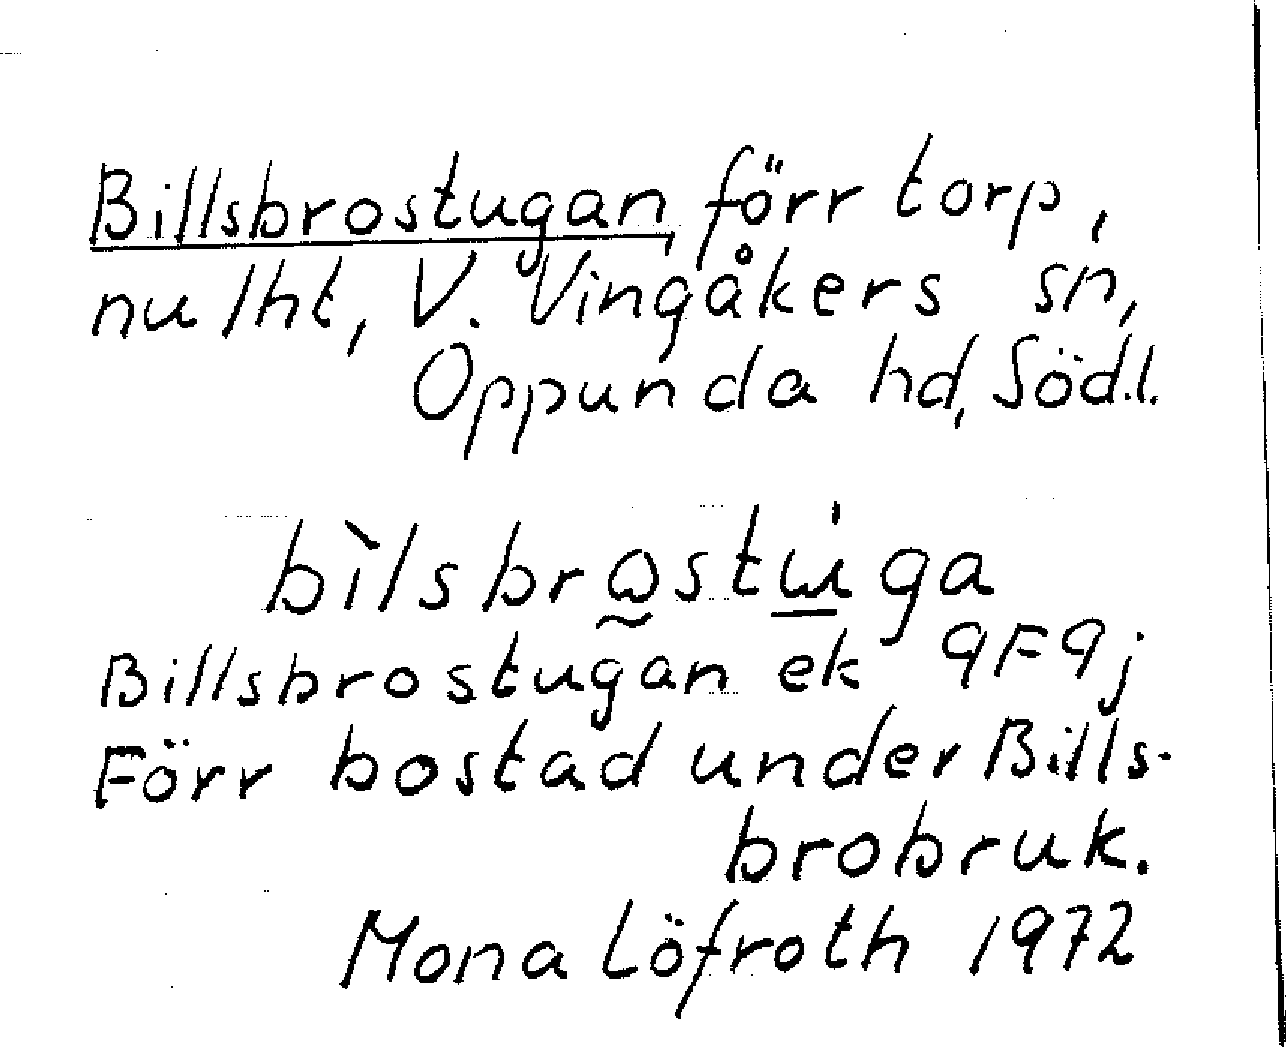 Billsbrostugan, förr torp,
nu lht, V. Vingåkers sn,
Oppunda hd, Södl.
bìlsbrω̰stẁ̱ga
Billsbrostugan ek 9F9j
Förr bostad under Bills-
brobruk.
Mona Löfroth 1972